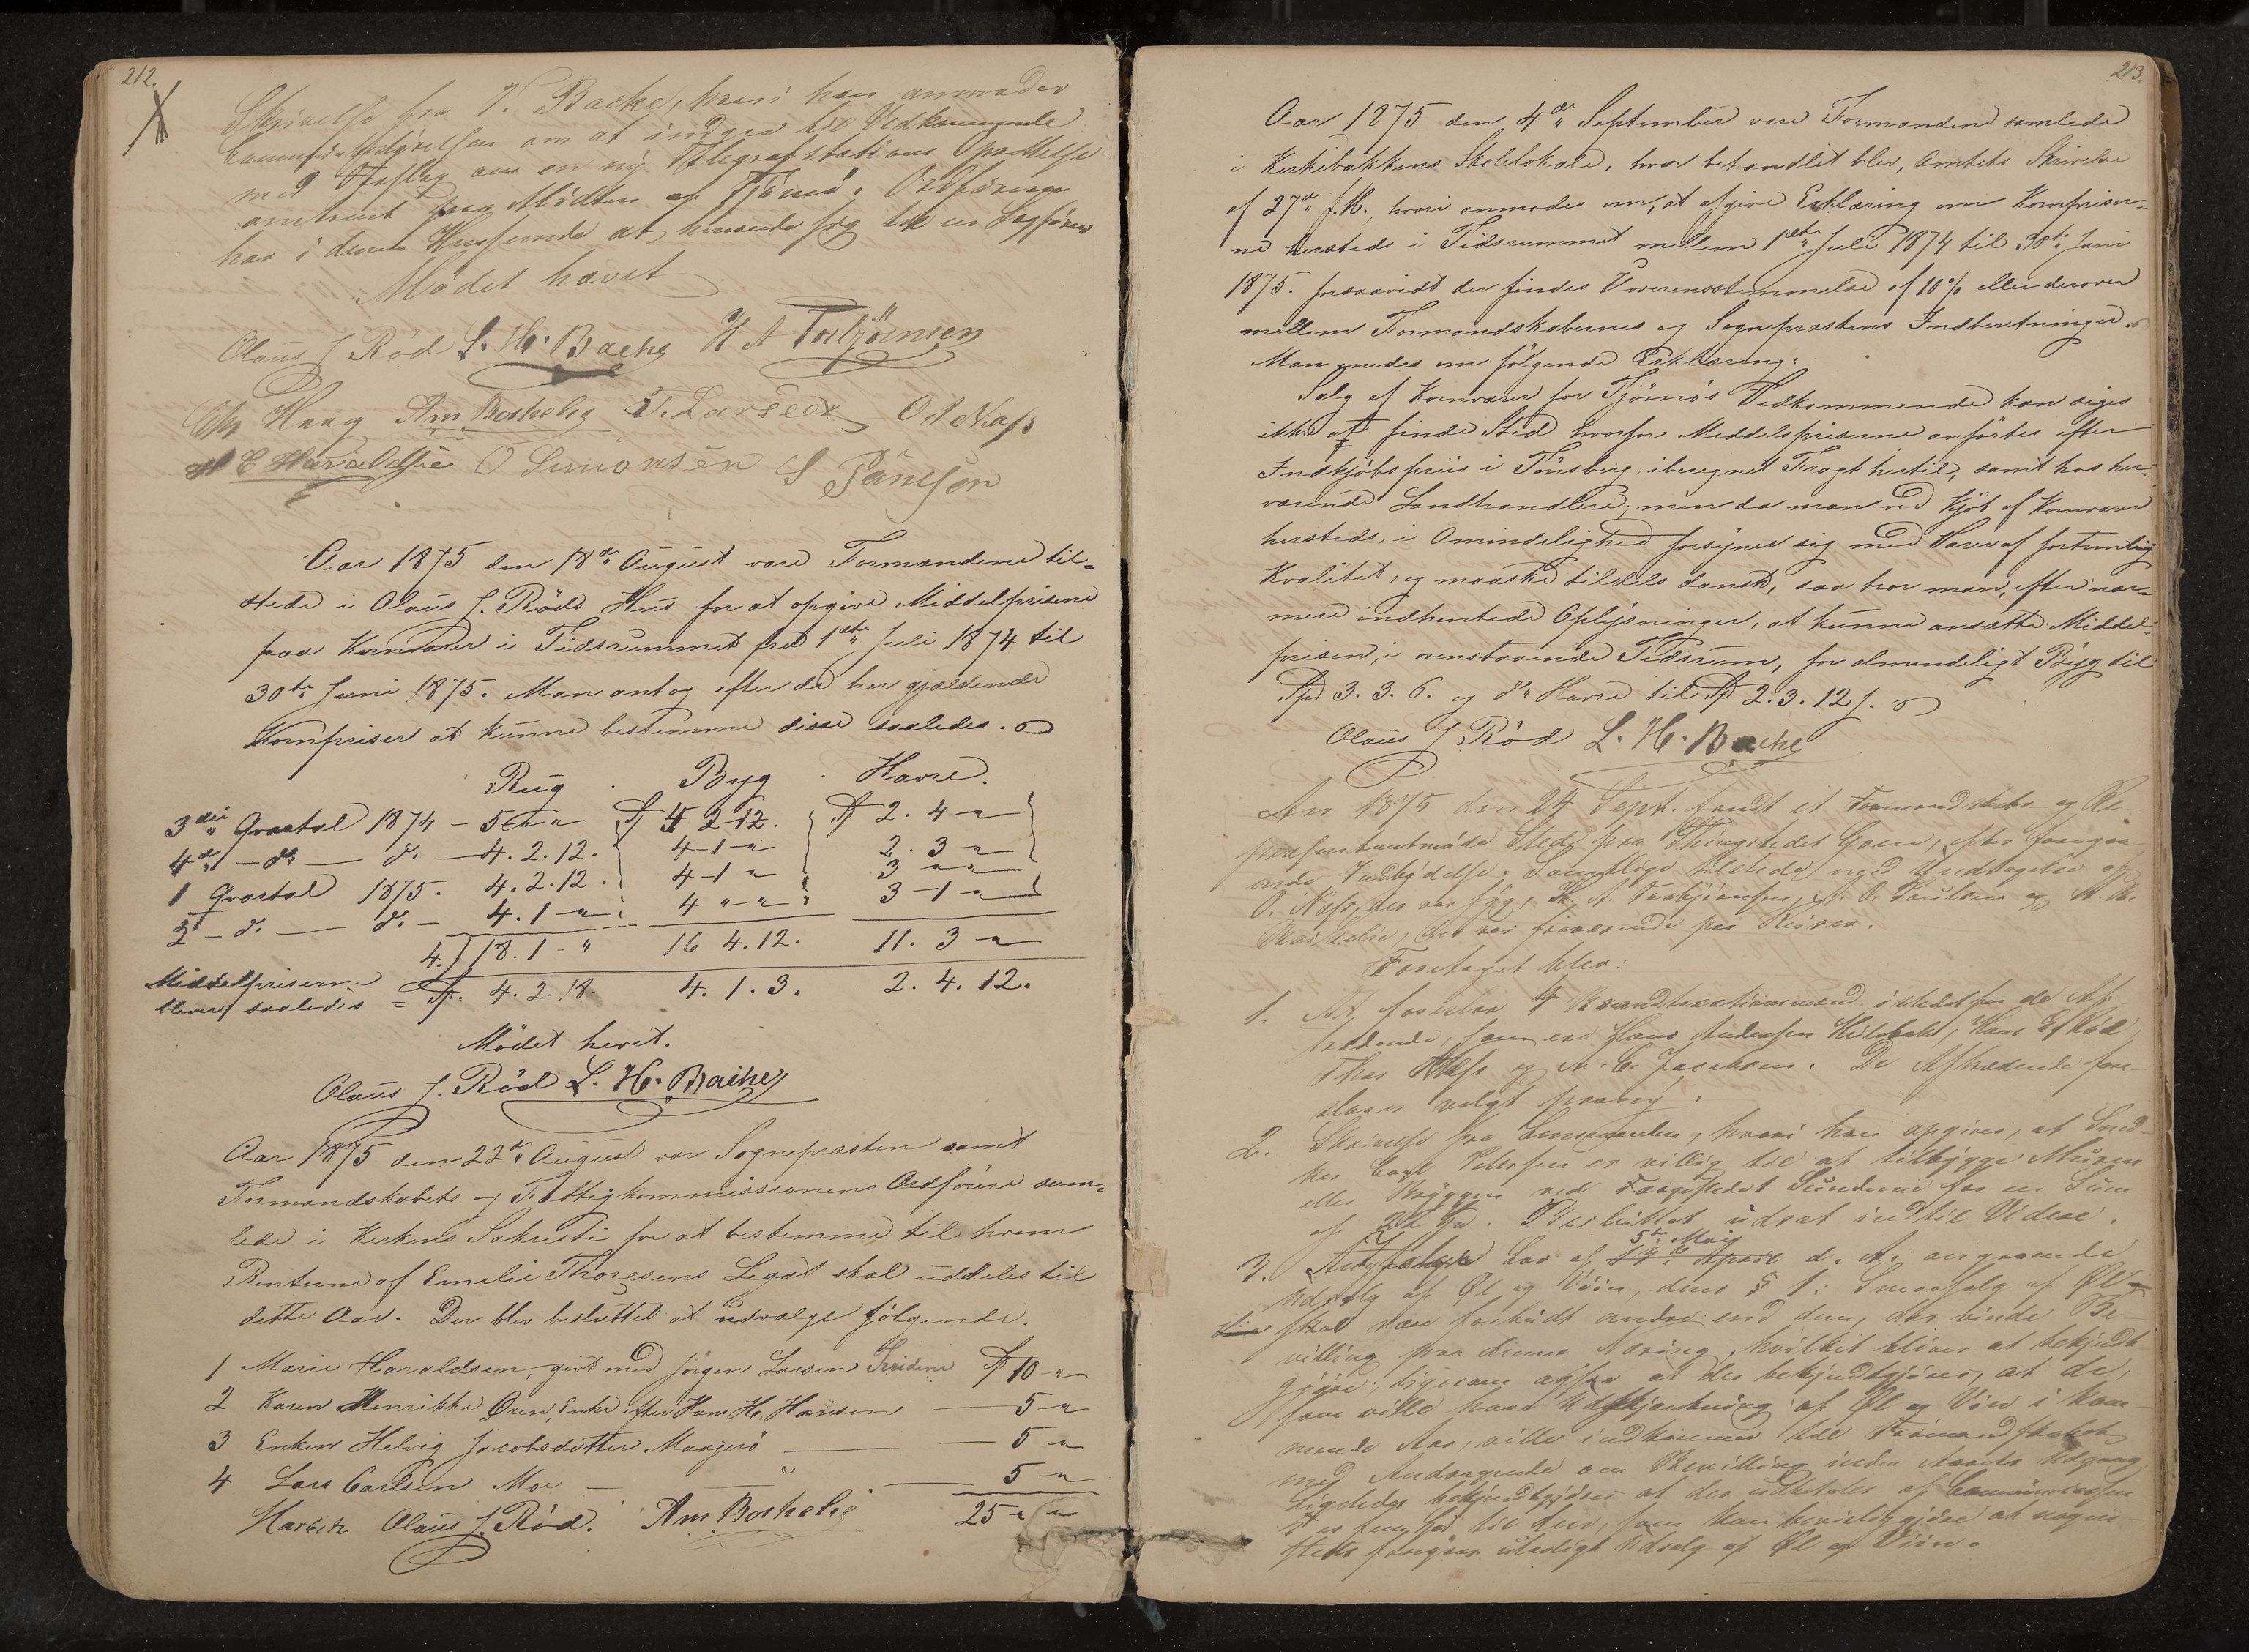 212.
Skrivelse fra T. Backe, hvori han anmoder
Communebestyrelsen om at indgaa til Vedkommende
med Forslag om en ny Telegrafstations Oprettelse
omtrent paa Midten af Tjømø. Ordføreren
har i denne Henseende at henvende sig til en Sagfører
Mødet hævet
Olaus J Rød L. H. Backe H A Torbjörnsen
Chr Haag Am Borhelie T. Larsen O. Næss
H E Haraldsen O Simonsen S Pausen
Aar 1875 den 18de August vare Formændene til-
stede i Olaus J. Röds Hus for at opgive Middelprisene
paa Kornvarer i Tidsrummet fra 1ste Juli 1874 til
30te Juni 1875. Man antog efter de her gjældende
Kornpriser at kunne bestemme disse saaledes.
Rug Byg Havre.
3die Qvartal 1874 - 5 " " Sp 4 2 12. Sp 2. 4 -"
4de - do - do - 4. 2. 12. 4 - 1 -" 2. 3 -"
1 Qvartal 1875. 4. 2. 12. 4 - 1 " 3 " "
2 - do - do - 4. 1 -" 4 " - " 3 - 1 -"
4.) 18. 1 - " 16 4. 12. 11. 3 -"
Middelpriserne
bliver saaledes = Sp. 4. 2. 18 4. 1. 3. 2. 4. 12.
Mödet hevet.
Olaus J. Röd L. H. Backe
Aar 1875 den 22de August var Sognepræsten samt
Formandskabets og Fattigkommissionens Ordförere sam-
lede i Kirkens Sakristi for at bestemme til hvem
Renterne af Emelie Thoresens Legat skal uddeles til
dette Aar. Der blev besluttet at udvælge fölgende.
1 Marie Haraldsen, givt med Jörgen Larsen Sp 10 -"
2 Karen Henrikke Øren, Enke efter Hans H. Hansen — 5 -"
3 Enken Helvig Jacobsdatter Maagerö — 5 -"
4 Lars Carlsen Moe — 5 -"
Olaus J. Röd. Am. Borhelie 25 " "
213.
Aar 1875 den 4de September vare Formændene samlede
i Kirkebakkens Skolelokale, hvor behandlet blev, Amtets Skrivelse
af 27de f.M., hvori anmodes om, at afgive Erklæring om Kornpriser-
ne hersteds i Tidsrummet mellem 1ste Juli 1874 til 30te Juni
1875. forsaavidt der findes Uoverensstemmelse af 10% eller derover
mellem Formandskabernes og Sognepræstens Indberetninger.
Man enedes om fölgende Erklæring:
Salg af Kornvarer for Tjömös Vedkommende kan siges
ikke at finde Sted hvorfor Middelpriserne anförtes efter
Indkjöbspriis i Tönsberg, iberegnet Fragt hertil, samt hos her-
værende Landhandlere; men da man ved Kjöb af Kornvarer
hersteds, i Almindelighed forsyner sig med Varer af fortrinlig
Kvalitet, og maaske tildels dansk, saa tror man, efter nær-
mere indhentede Oplysninger, at kunne ansætte Middel-
prisen, i ovenstaaende Tidsrum, for almindeligt Byg til
Spd 3. 3. 6. og do Havre til Sp 2. 3. 12 s.
Olaus J. Röd L. H. Backe
Aar 1875 den 24 Sept. fandt et Formandskabs- og Re-
præsentantmøde Sted paa Thingstedet Grøn, efter foregaa-
ende Indbydelse. Samtlige tilstede med Undtagelse af
O. Næss, der var syg, H. A. Torbjørnsen, A. O. Paulsen og A. M.
Borhelie, der var fraværende paa Reiser.
Foretaget blev:
1. At foreslaa 4 Brandtaxationsmænd istedetfor de Af-
trædende, som ere Hans Andersen Hilbækk, Hans E Röd,
Thor Næss og A. C. Jacobsen. De Aftrædende fore-
slaaes valgt paany.
2. Skrivelse fra Lensmanden, hvori han opgiver, at Sned-
ker Carl Petersen er villig til at tilbygge Muren
eller Bryggen ved Færgestedet Sundene for en Sum
af 22 Spd. Besluttet udsat indtil Videre.
3. Lov af 5te Mai d. A. angaaende
Udsalg af Øl og Viin, dens § 1: Smaasalg af Øl
skal være forbudt andre end dem, der vinde Be-
villing paa denne Næring, hvilket bliver at bekjendt-
gjøre; ligesom ogsaa at der bekjendtgjøres, at de,
som ville have Udskjænkning af Øl og Viin i kom-
mende Aar, ville indkomme til Formandskabet
med Andragende om Bevilling inden Aarets Udgang
Ligeledes bekjendtgjøres at der udbetales af Communekassen
til den, som kan bevisliggjøre at nogen-
steds foregaar ulovligt Udsalg af Øl og Viin.